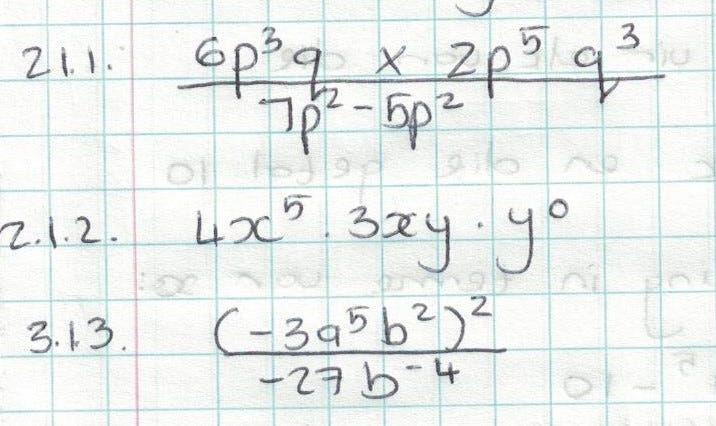 21.1. 6p³q x 2p⁵ q³
7p² - 5p²
2.1.2. 4x⁵ . 3xy . y⁰
3.13. (-3a⁵b²)²
-27b⁻⁴